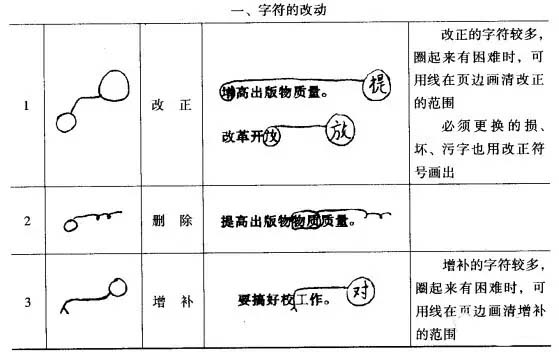 一、字符的改动
1
改正
增高出版物质量。 提
改革开放 放
改正的字符较多，
圈起来有困难时，可
用线在页边画清改正
的范围
必须更换的损、
坏、污字也用改正符
号画出
2
删除
提高出版物物质质量。
3
增补
要搞好校工作。 对
增补的字符较多，
圈起来有困难时，可
用线在页边画清增补
的范围